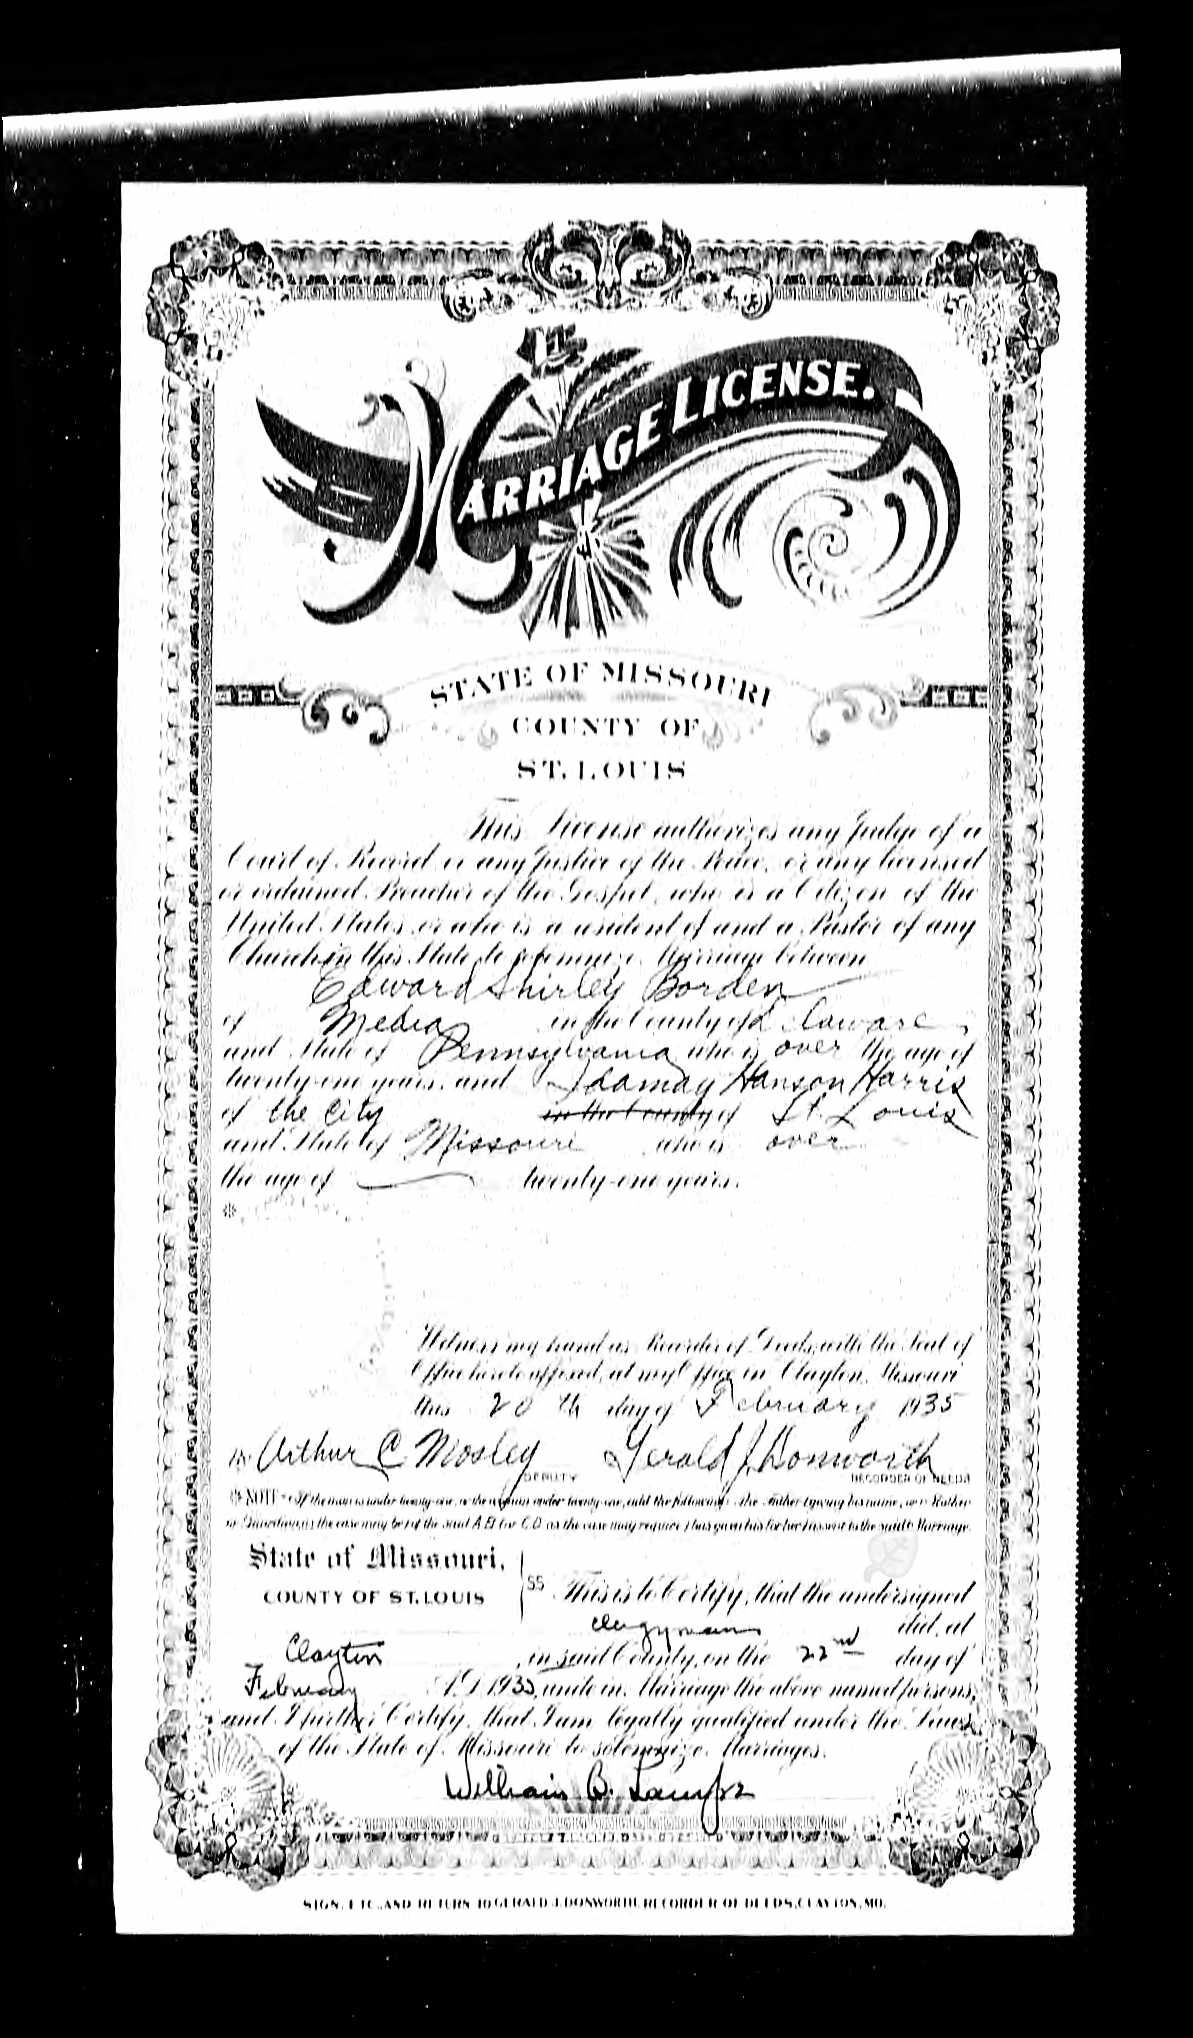 MARRIAGE LICENSE.
STATE OF MISSOURI
COUNTY OF
ST. LOUIS
This License authorizes any Judge of a
Court of Record or any Justice of the Peace, or any licensed
or ordained Preacher of the Gospel, who is a Citizen of the
United States, or who is a resident of and a Pastor of any
Church in this State, to solemnize Marriage between
Edward Shirley Borden
of Media in the County of Delaware
and State of Pennsylvania who is over the age of
twenty-one years, and Idamay Hanson Harris
of the City in the County of St. Louis
and State of Missouri who is over
the age of twenty-one years.
*
Witness my hand as Recorder of Deeds, with the Seal of
Office hereto affixed, at my Office in Clayton, Missouri
this 20 th day of February 1935
By Arthur C. Mosley Gerald J. Donworth
DEPUTY RECORDER OF DEEDS
* NOTE - If the man is under twenty-one, or the woman under twenty-one, add the following: The Father, giving his name, or Mother
or Guardian, as the case may be, of the said A.B. (or C.D. as the case may require) has given his (or her) assent to the said Marriage.
State of Missouri,
COUNTY OF ST. LOUIS SS This is to Certify, that the undersigned
clergyman did, at
Clayton, in said County, on the 22nd day of
February A.D. 1935, unite in Marriage the above named persons,
and I further Certify, that I am legally qualified under the Laws
of the State of Missouri to solemnize Marriages.
William B. Lampe
SIGN, ETC., AND RETURN TO GERALD J. DONWORTH, RECORDER OF DEEDS, CLAYTON, MO.